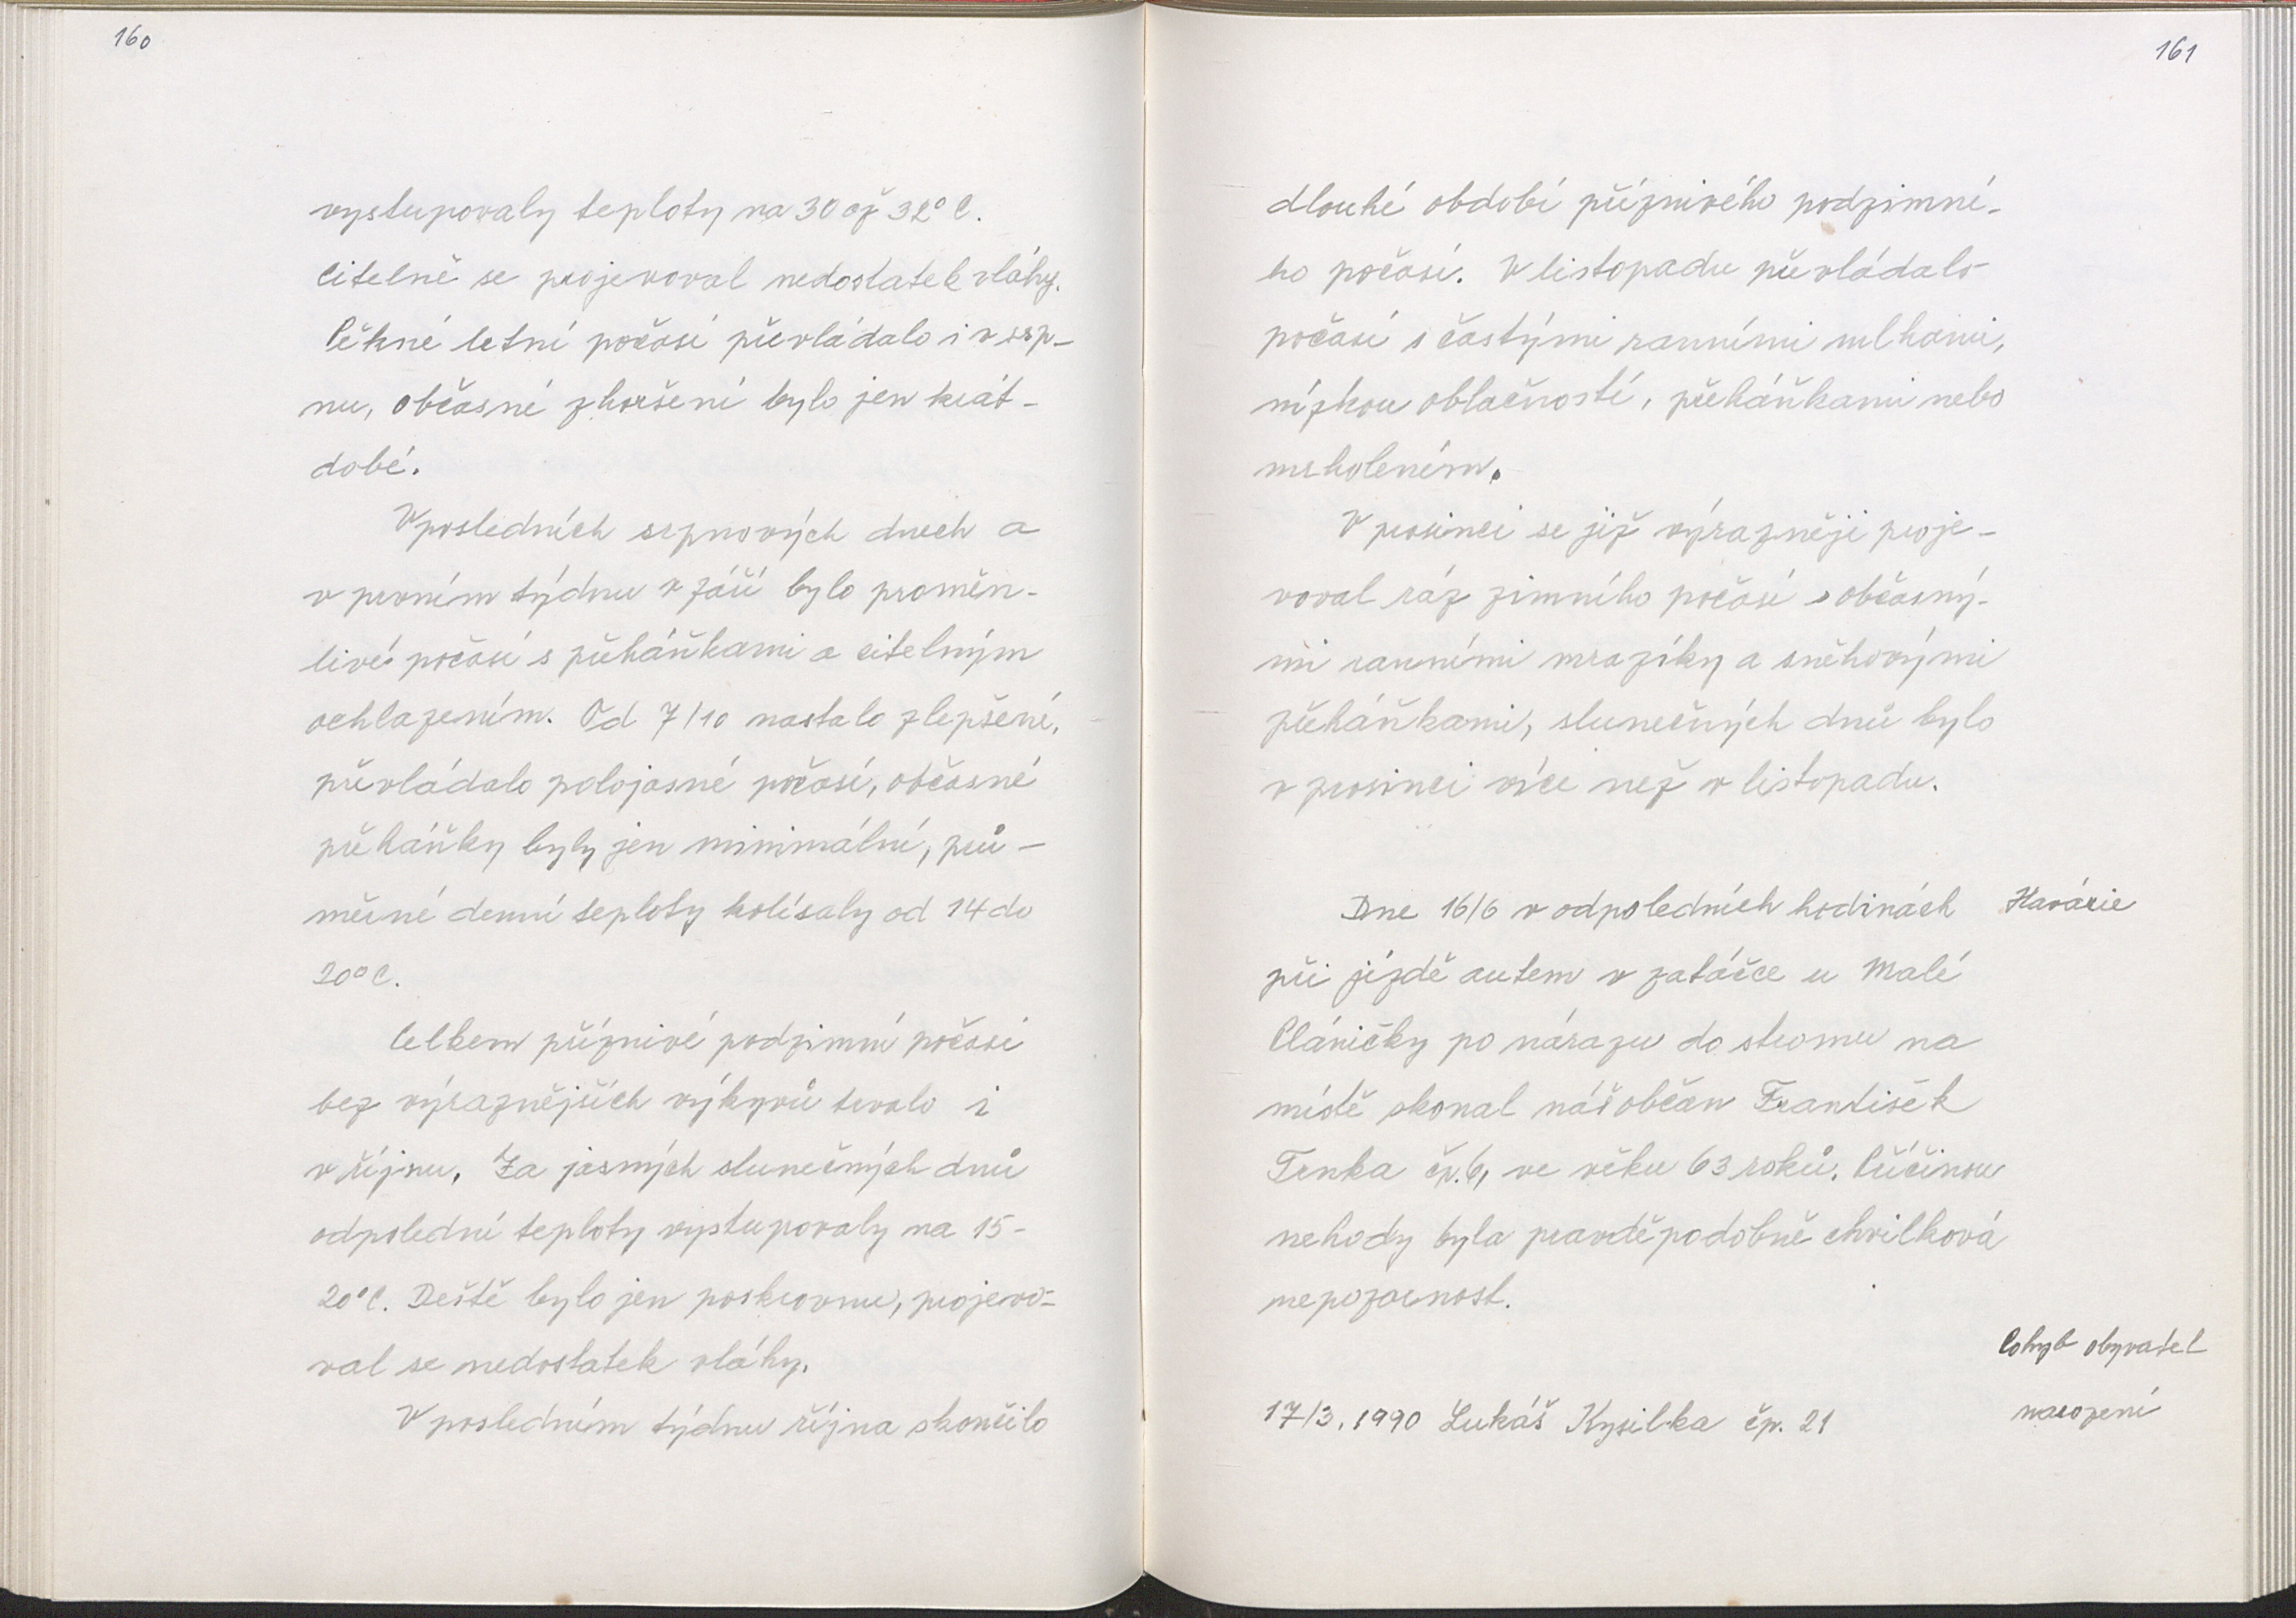 160
vystupovaly teploty na 30 až 32° C.
Citelně se projevoval nedostatek vláhy.
Pěkné letní počasí převládalo i v srp-
nu, občasné zhoršení bylo jen krát-
dobé.
V posledních srpnových dnech a
v prvním týdnu v září bylo proměn-
livé počasí s přeháňkami a citelným
ochlazením. Od 7/10 nastalo zlepšení,
převládalo polojasné počasí, občasné
přeháňky byly jen minimální, prů-
měrné denní teploty kolísaly od 14 do
20° C.
Celkem příznivé podzimní počasí
bez výraznějších výkyvů trvalo i
v říjnu. Za jasných slunečných dnů
odpolední teploty vystupovaly na 15-
20° C. Deště bylo jen poskrovnu, projevo-
val se nedostatek vláhy.
V posledním týdnu října skončilo
161
dlouhé období příznivého podzimní-
ho počasí. V listopadu převládalo
počasí s častými ranními mlhami,
nízkou oblačností, přeháňkami nebo
mrholením.
V prosinci se již výrazněji proje-
voval ráz zimního počasí s občasný-
mi ranními mrazíky a sněhovými
přeháňkami, slunečných dnů bylo
v prosinci více než v listopadu.
Dne 16/6 v odpoledních hodinách Havárie
při jízdě autem v zatáčce u Malé
Pláničky po nárazu do stromu na
místě skonal náš občan František
Trnka čp. 6, ve věku 63 roků. Příčinou
nehody byla pravděpodobně chvilková
nepozornost.
Pohyb obyvatel
17/3. 1990 Lukáš Kysilka čp. 21 narození